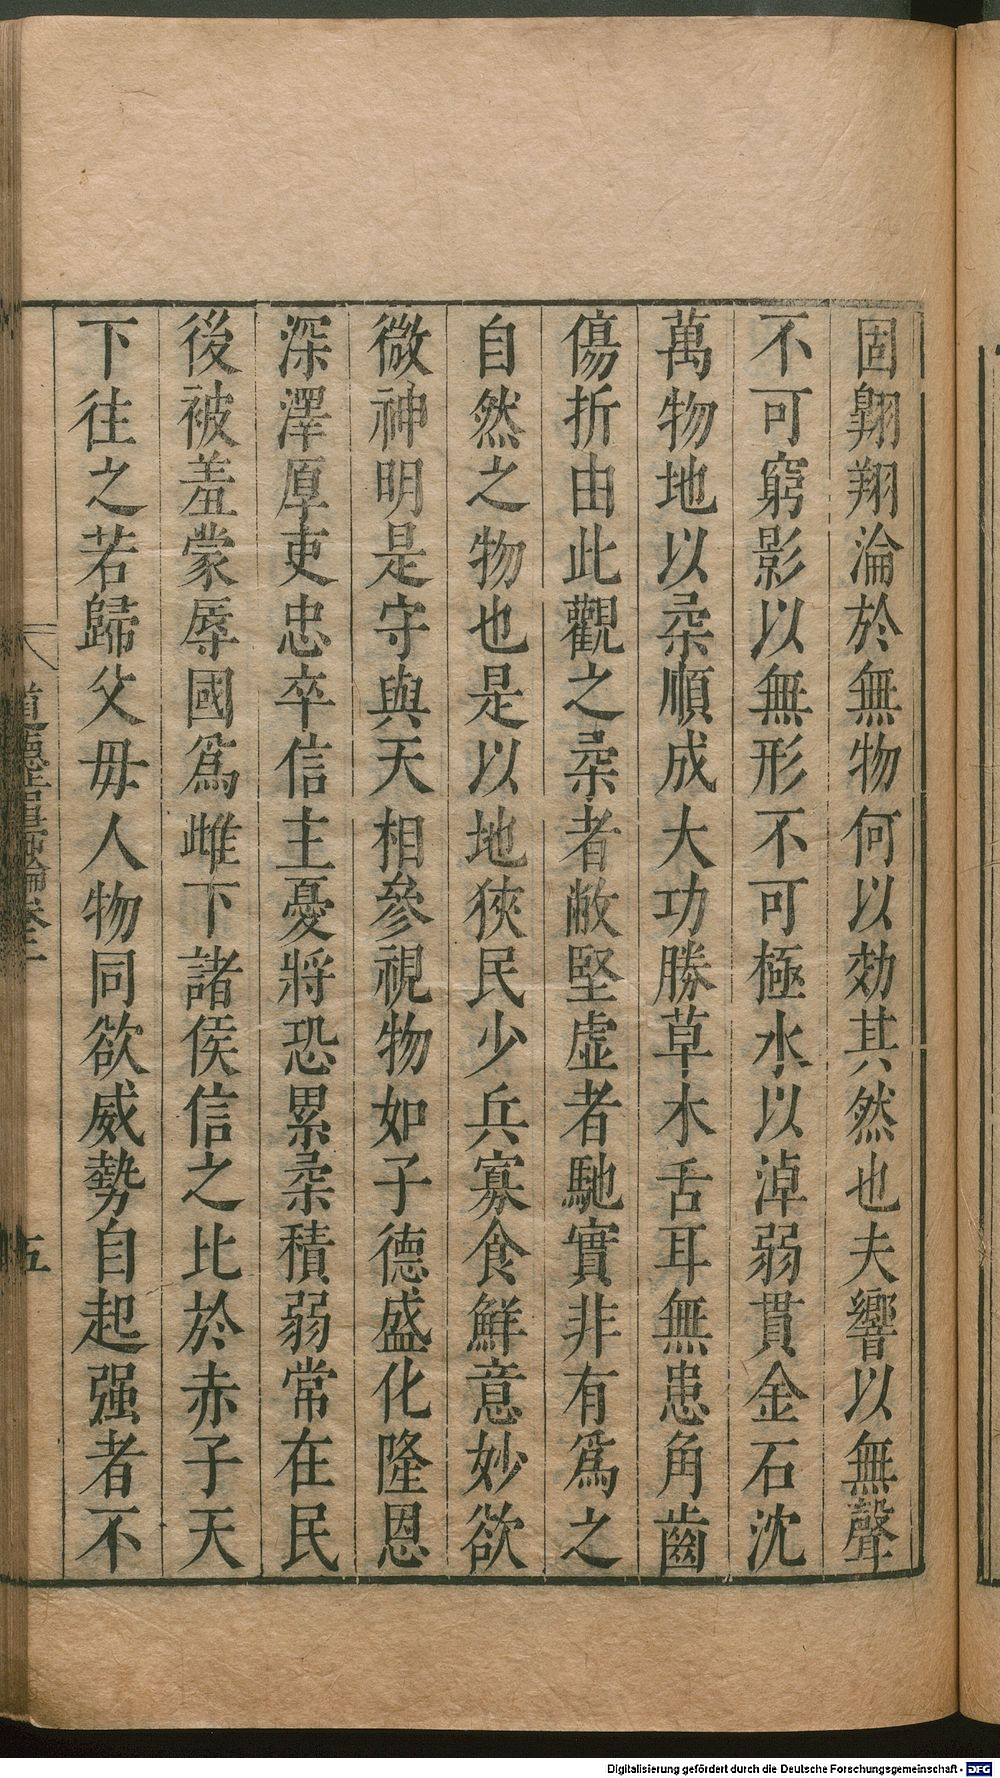 固翺翔淪於無物何以効其然也夫響以無聲
不可窮影以無形不可極水以淖弱貫金石沈
萬物地以柔順成大功勝草木舌耳無患角齒
傷折由此觀之柔者敝堅虛者馳實非有爲之
自然之物也是以地狹民少兵寡食鮮意妙欲
微神明是守與天相參視物如子德盛化隆恩
深澤厚吏忠卒信主憂將恐累柔積弱常在民
後被羞蒙辱國爲雌下諸侯信之比於赤子天
下往之若歸父母人物同欲威勢自起强者不
道德指歸論卷三
五
Digitalisierung gefördert durch die Deutsche Forschungsgemeinschaft - DFG